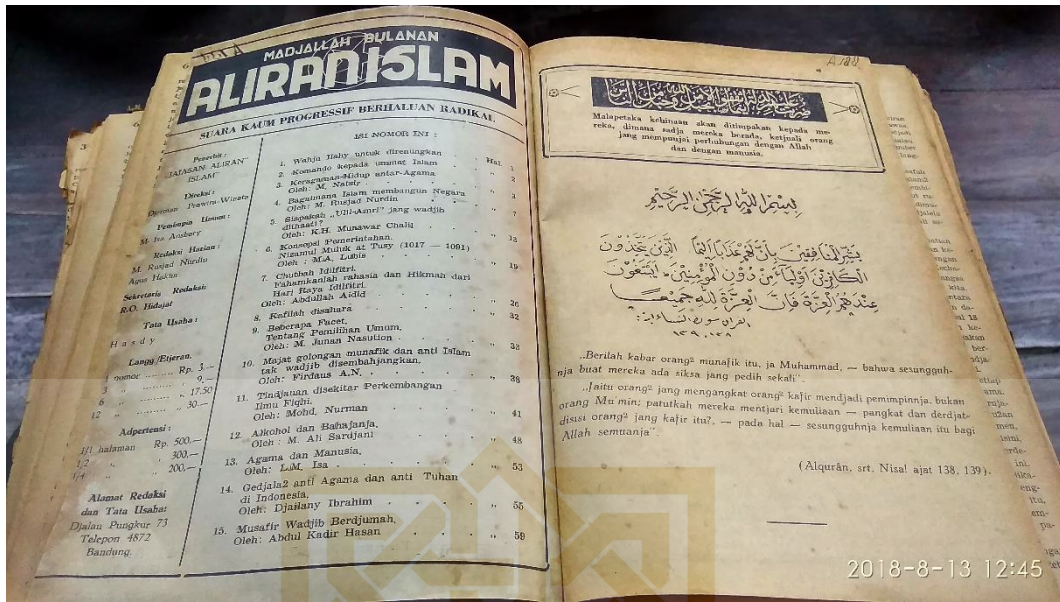 MADJALLAH BULANAN
ALIRAN ISLAM
SUARA KAUM PROGRESSIF BERHALUAN RADIKAL
Penerbit :
"JAJASAN ALIRAN
ISLAM"
Direksi :
Prawira Winata
Pemimpin Umum :
M. Isa Anshary
Redaksi Harian :
M. Rusjad Nurdin
Agus Hakan
Sekretaris Redaksi:
R.O. Hidajat
Tata Usaha :
Hasdy
Langg./Etjeran.
3 nomor ......... Rp. 3.—
3 „ ......... „ 9,—
6 „ ......... „ 17.50
12 „ ......... „ 30.—
Adpertensi :
1/1 halaman Rp. 500,—
1/2 „ „ 300.—
1/4 „ „ 200,—
Alamat Redaksi
dan Tata Usaha:
Djalan Pungkur 73
Telepon 4872
Bandung.
ISI NOMOR INI :
Hal.
1. Wahju Ilahy untuk direnungkan . . 1
2. Komando kepada ummat Islam . „ 2
3. Keragaman-Hidup antar-Agama
Oleh: M. Natsir . . . „ 3
4. Bagaimana Islam membangun Negara
Oleh: M. Rusjad Nurdin . . „ 7
5. Siapakah „Ulil-Amri" jang wadjib
ditaati?
Oleh: K.H. Munawar Chalil . . „ 13
6. Konsepsi Pemerintahan.
Nizamul Muluk at Tusy (1017 — 1091)
Oleh : M.A. Lubis . . . „ 19
7. Chutbah Idilfitri.
Fahamkanlah rahasia dan Hikmah dari
Hari Raya Idilfitri.
Oleh: Abdullah Aidid . . . „ 26
8. Kafilah disahara . . . „ 32
9. Beberapa Facet,
Tentang Pemilihan Umum,
Oleh: M. Junan Nasution . . „ 33
10. Majat golongan munafik dan anti Islam
tak wadjib disembahjangkan,
Oleh: Firdaus A.N. . . . „ 38
11. Tindjauan disekitar Perkembangan
Ilmu Fiqhi.
Oleh: Mohd. Nurman . . . „ 41
12. Alkohol dan Bahajanja,
Oleh : M. Ali Sardjani . . „ 48
13. Agama dan Manusia,
Oleh: L.M. Isa . . . „ 53
14. Gedjala2 anti Agama dan anti Tuhan
di Indonesia,
Oleh: Djailany Ibrahim . . „ 55
15. Musafir Wadjib Berdjumah,
Oleh: Abdul Kadir Hasan . . „ 59
Malapetaka kehinaan akan ditimpakan kepada me-
reka, dimana sadja mereka berada, ketjuali orang
jang mempunjai perhubungan dengan Allah
dan dengan manusia.
بسم الله الرحمن الرحيم
بشر المنافقين بأن لهم عذابا أليما الذين يتخذون
الكافرين أولياء من دون المؤمنين أيبتغون
عندهم العزة فإن العزة لله جميعا
„Berilah kabar orang² munafik itu, ja Muhammad, — bahwa sesungguh-
nja buat mereka ada siksa jang pedih sekali".
„Jaitu orang² jang mengangkat orang² kafir mendjadi pemimpinnja, bukan
orang Mu'min; patutkah mereka mentjari kemuliaan — pangkat dan derdjat-
disisi orang² jang kafir itu?, — pada hal — sesungguhnja kemuliaan itu bagi
Allah semuanja".
(Alqurân, srt. Nisa! ajat 138, 139).
2018-8-13 12:45